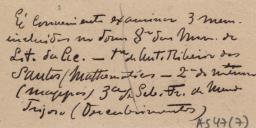 É conveniente examinar 3 mem.
incluidas no tomo 8º das Mem. de
Lit. da Ac. — 1ª de Antº Ribeiro dos
Santos (Mathematicas — 2ª do mesmo
(mappas) 3ª de Seb. Fr. de Mendo
Trigozo (Descobrimentos)
AS47(7)